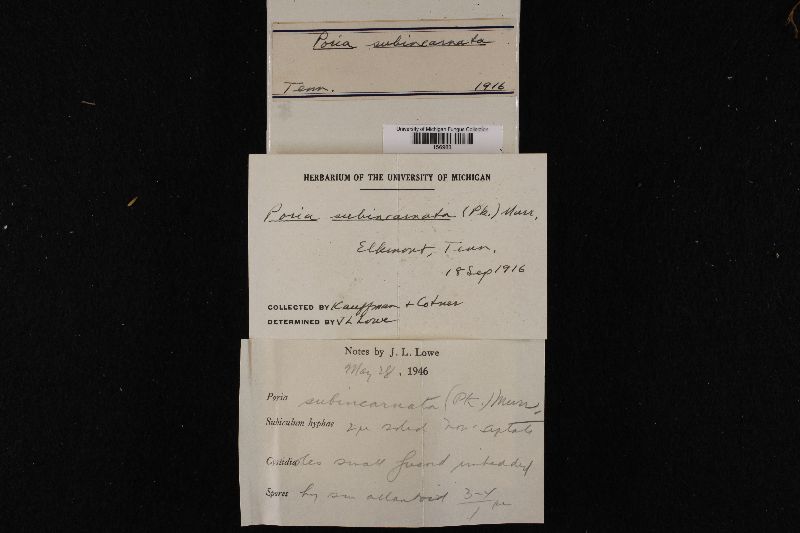 Poria subincarnata
Tenn. 1916
University of Michigan Fungus Collection
HERBARIUM OF THE UNIVERSITY OF MICHIGAN
Poria subincarnata (Pk.) Murr.
Elkmont, Tenn.
18 Sep 1916
COLLECTED BY Kauffman + Cotner
DETERMINED BY J L Lowe
Notes by J. L. Lowe
May 28, 1946
Poria subincarnata (Pk.) Murr.
Subiculum hyphae 2µ solid non-septate
Cystidioles small fusoid imbedded
Spores hy sm allantoid 3-4/1 µ